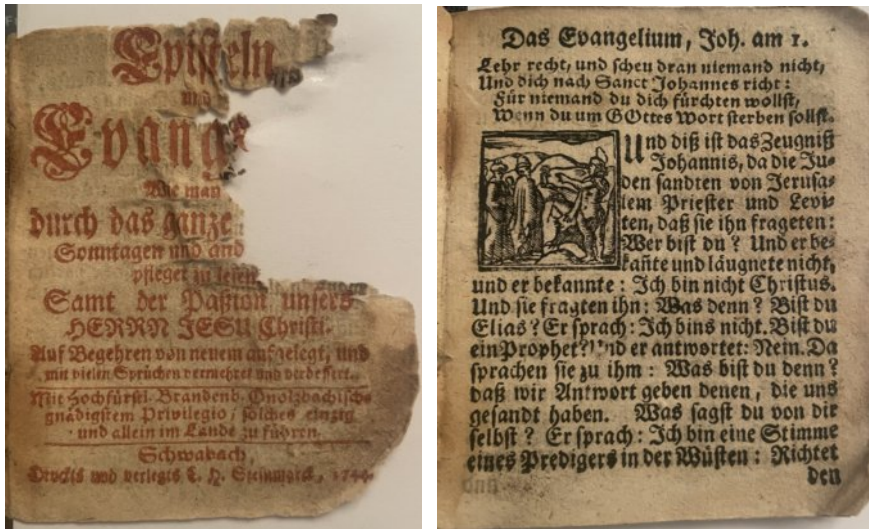 Episteln
und
Evang
Wie man
durch das ganze
Sonntagen und and
pfleget zu lesen
Samt der Paßion unsers
HERRN JESU Christi.
Auf Begehren von neuem aufgelegt, und
mit vielen Sprüchen vermehret und verbessert.
Mit Hochfürstl. Brandenb. Onolzbachisch-
gnädigstem Privilegio, solches einzig
und allein im Lande zu führen.
Schwabach,
Druckts und verlegts
Das Evangelium, Joh. am 1.
Lehr recht, und scheu dran niemand nicht,
Und dich nach Sanct Johannes richt:
Für niemand du dich fürchten wollst,
Wenn du um GOttes Wort sterben sollst.
Und diß ist das Zeugniß
Johannis, da die Ju-
den sandten von Jerusa-
lem Priester und Levi-
ten, daß sie ihn frageten:
Wer bist du? Und er be-
kañte und läugnete nicht,
und er bekannte: Ich bin nicht Christus.
Und sie fragten ihn: Was denn? Bist du
Elias? Er sprach: Ich bins nicht. Bist du
ein Prophet? Und er antwortet: Nein. Da
sprachen sie zu ihm: Was bist du denn?
daß wir Antwort geben denen, die uns
gesandt haben. Was sagst du von dir
selbst? Er sprach: Ich bin eine Stimme
eines Predigers in der Wüsten: Richtet
den